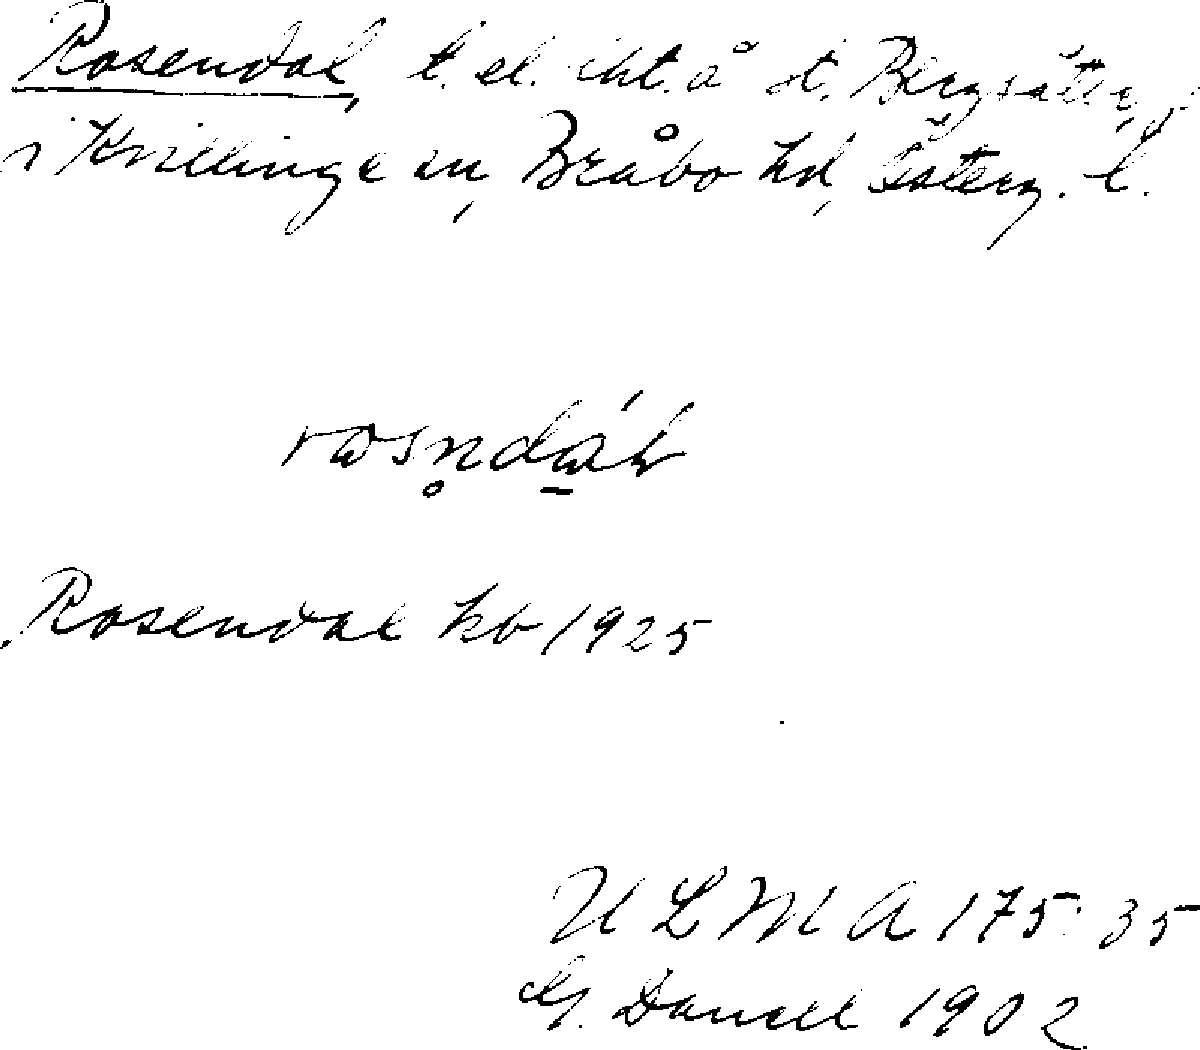 Rosendal, t. el. iht. å t. Bergsätter,
i Kvillinge sn, Bråbo hd, Österg. l.
rosn̥dáḷ
Rosendal kb 1925
ULMA 175:35
G. Danell 1902